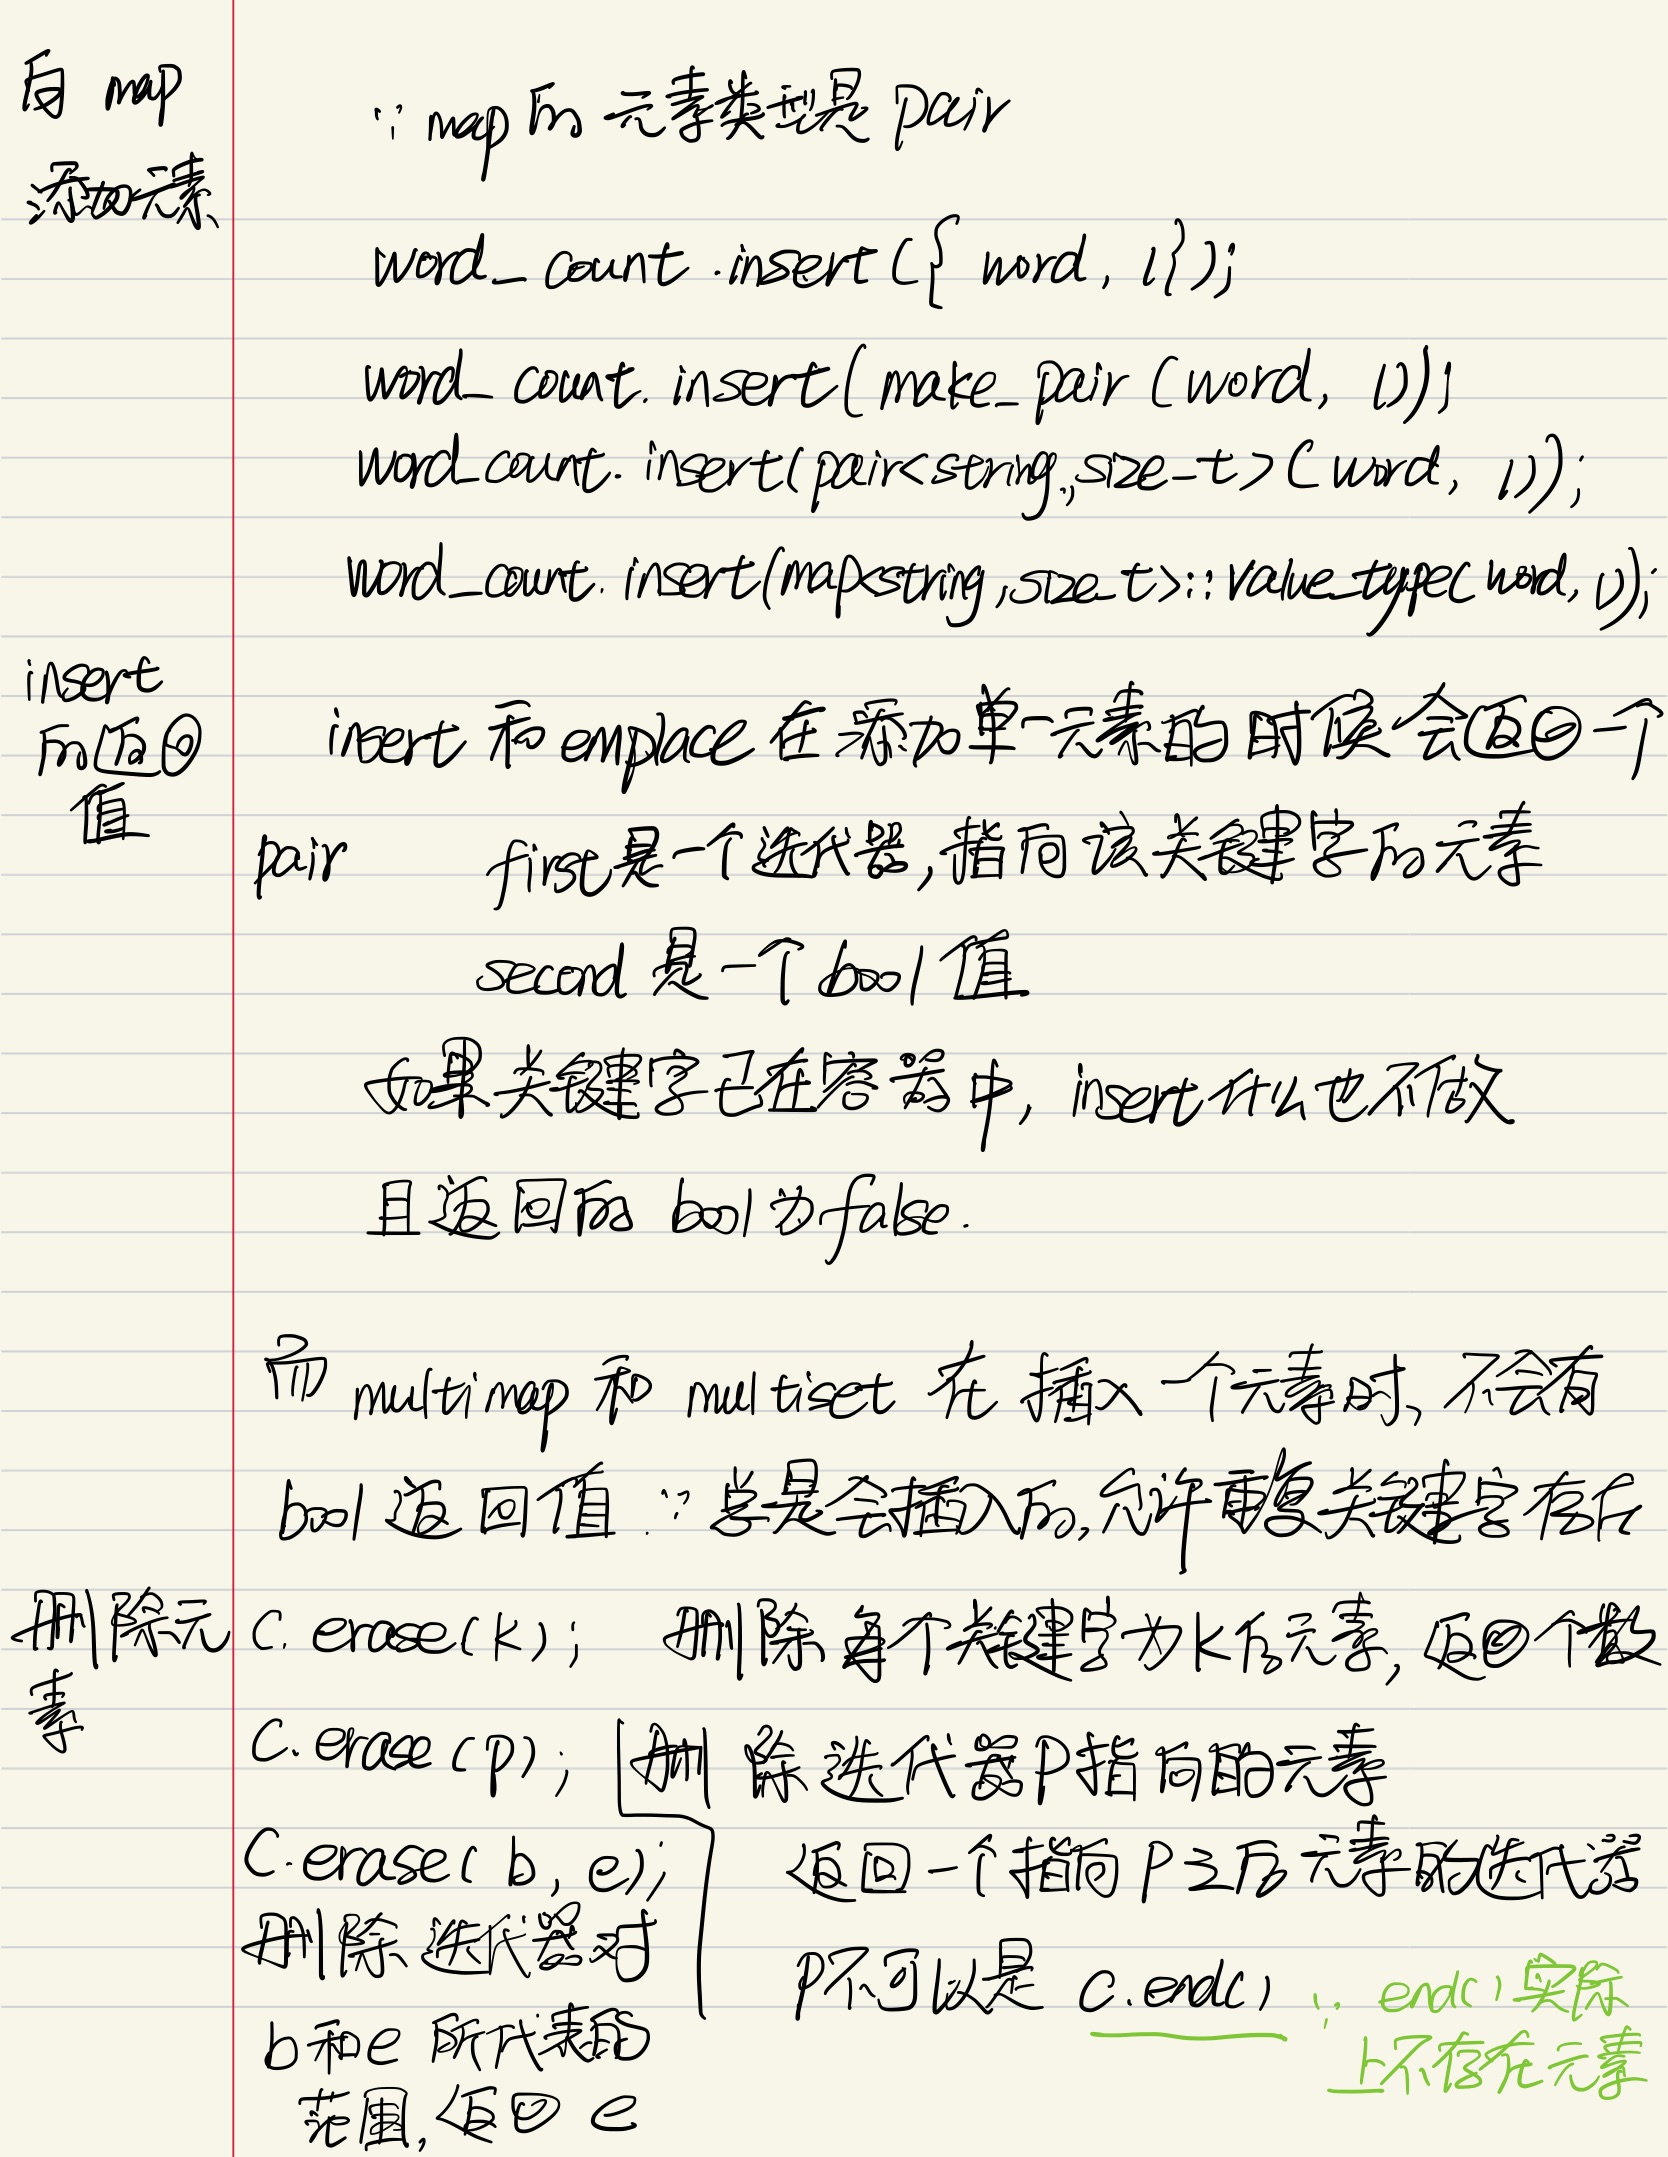 向 map
添加元素
∵ map 的 元素类型是 pair
word_count.insert({ word, 1});
word_count.insert(make_pair(word, 1));
word_count.insert(pair<string,size_t>(word, 1));
word_count.insert(map<string,size_t>::value_type(word,1));
insert
的返回
值
insert 和 emplace 在添加单一元素的时候会返回一个
pair first是一个迭代器,指向该关键字的元素
second 是一个 bool 值
如果关键字已在容器中, insert什么也不做
且返回的 bool为false.
而 multimap 和 multiset 在 插入一个元素时, 不会有
bool 返回值 ∵ 总是会插入的,允许重复关键字存在
删除元
素
c.erase(k); 删除每个关键字为k的元素, 返回个数
c.erase(p); 删除迭代器p指向的元素
返回一个指向 p 之后元素的迭代器
p不可以是 c.end()
∵ end()实际
上不存在元素
c.erase(b, e);
删除迭代器对
b和e 所代表的
范围,返回 e